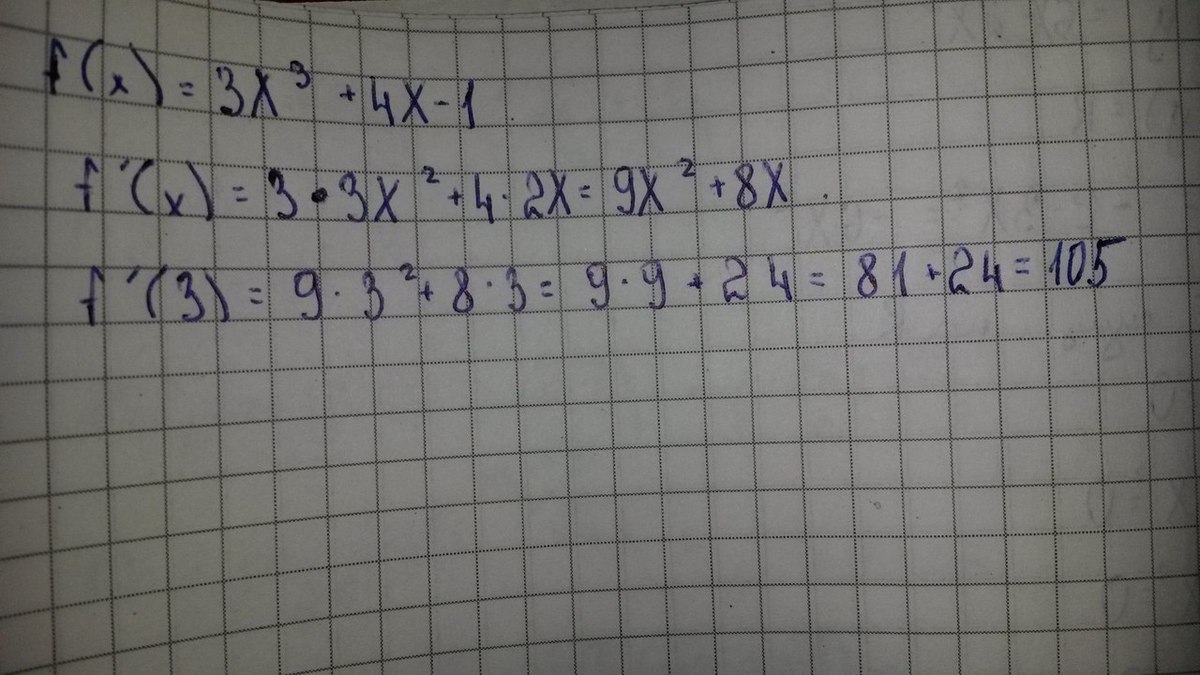 f(x) = 3x³ + 4x - 1
f'(x) = 3 · 3x² + 4 · 2x = 9x² + 8x
f'(3) = 9 · 3² + 8 · 3 = 9 · 9 + 24 = 81 + 24 = 105